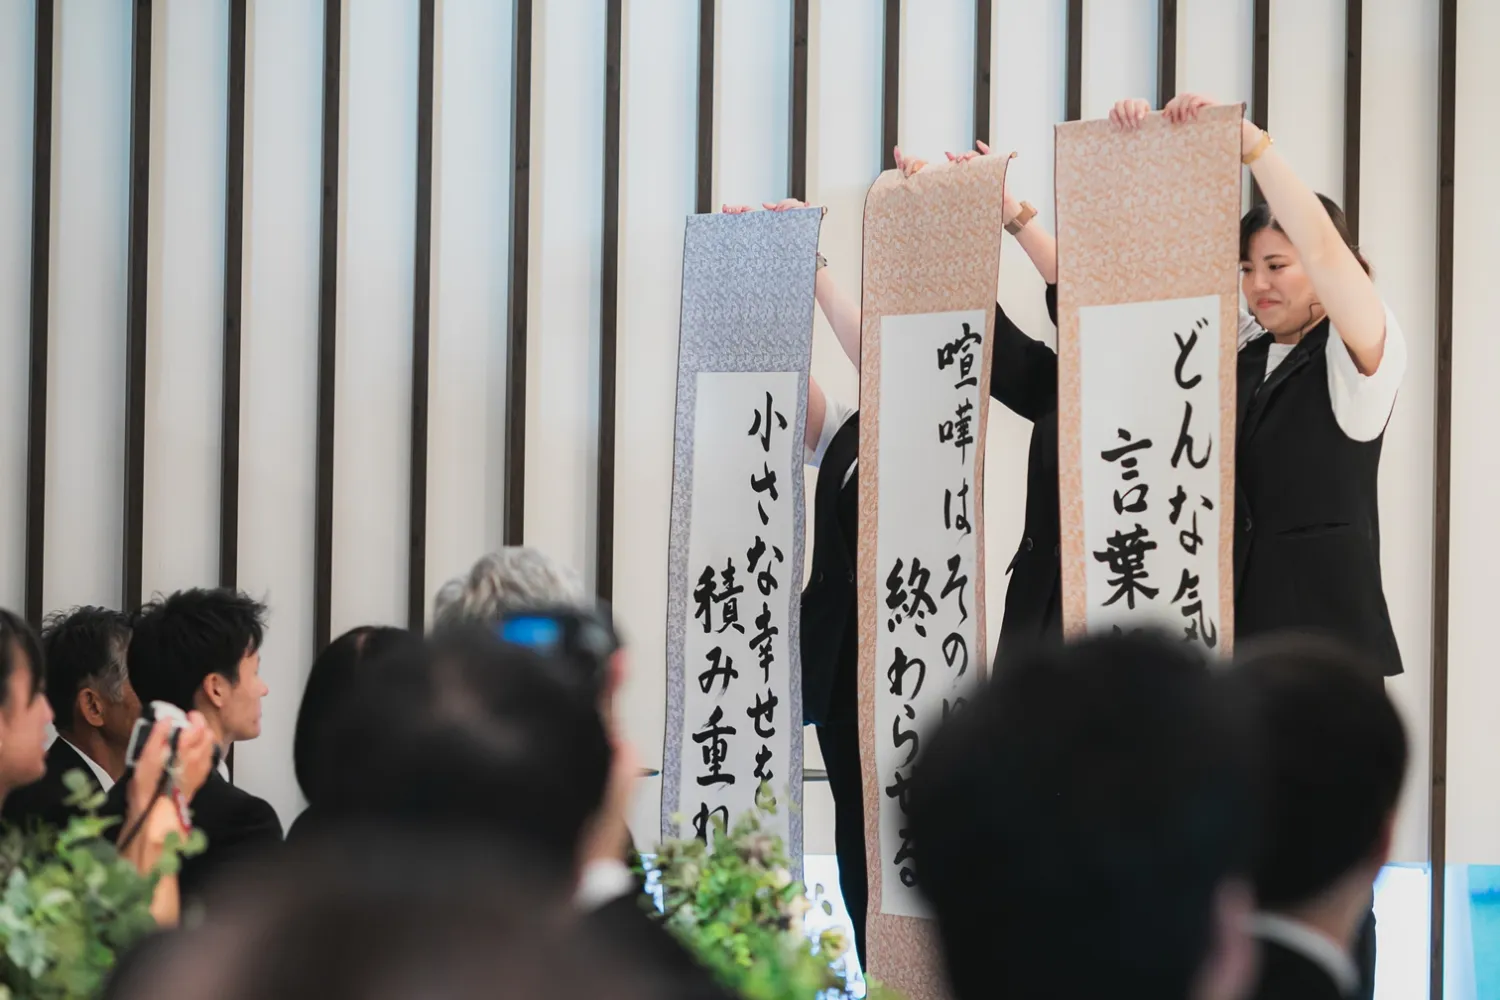 どんな気
言葉
喧嘩はその
終わらせる
小さな幸せを
積み重ね